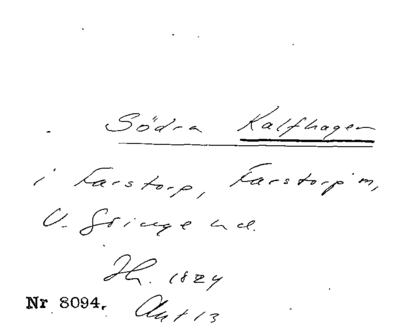 Södra Kalfhagen
i Farstorp, Farstorp m,
V. Göinge hd.
Jh. 1824
Nr 8094. Akt 13